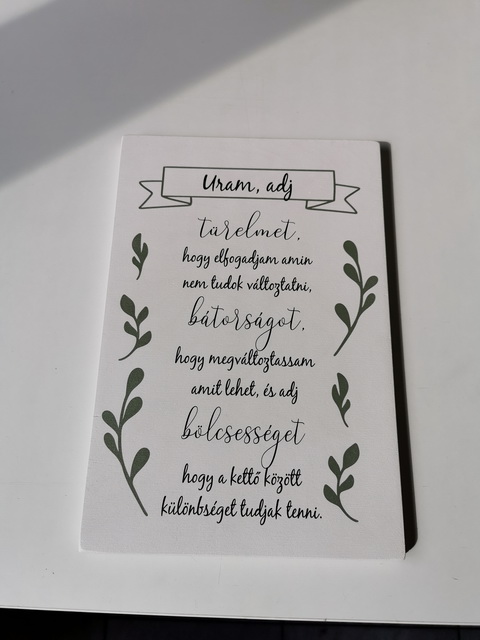 Uram, adj
türelmet,
hogy elfogadjam amin
nem tudok változtatni,
bátorságot,
hogy megváltoztassam
amit lehet, és adj
bölcsességet
hogy a kettő között
különbséget tudjak tenni.